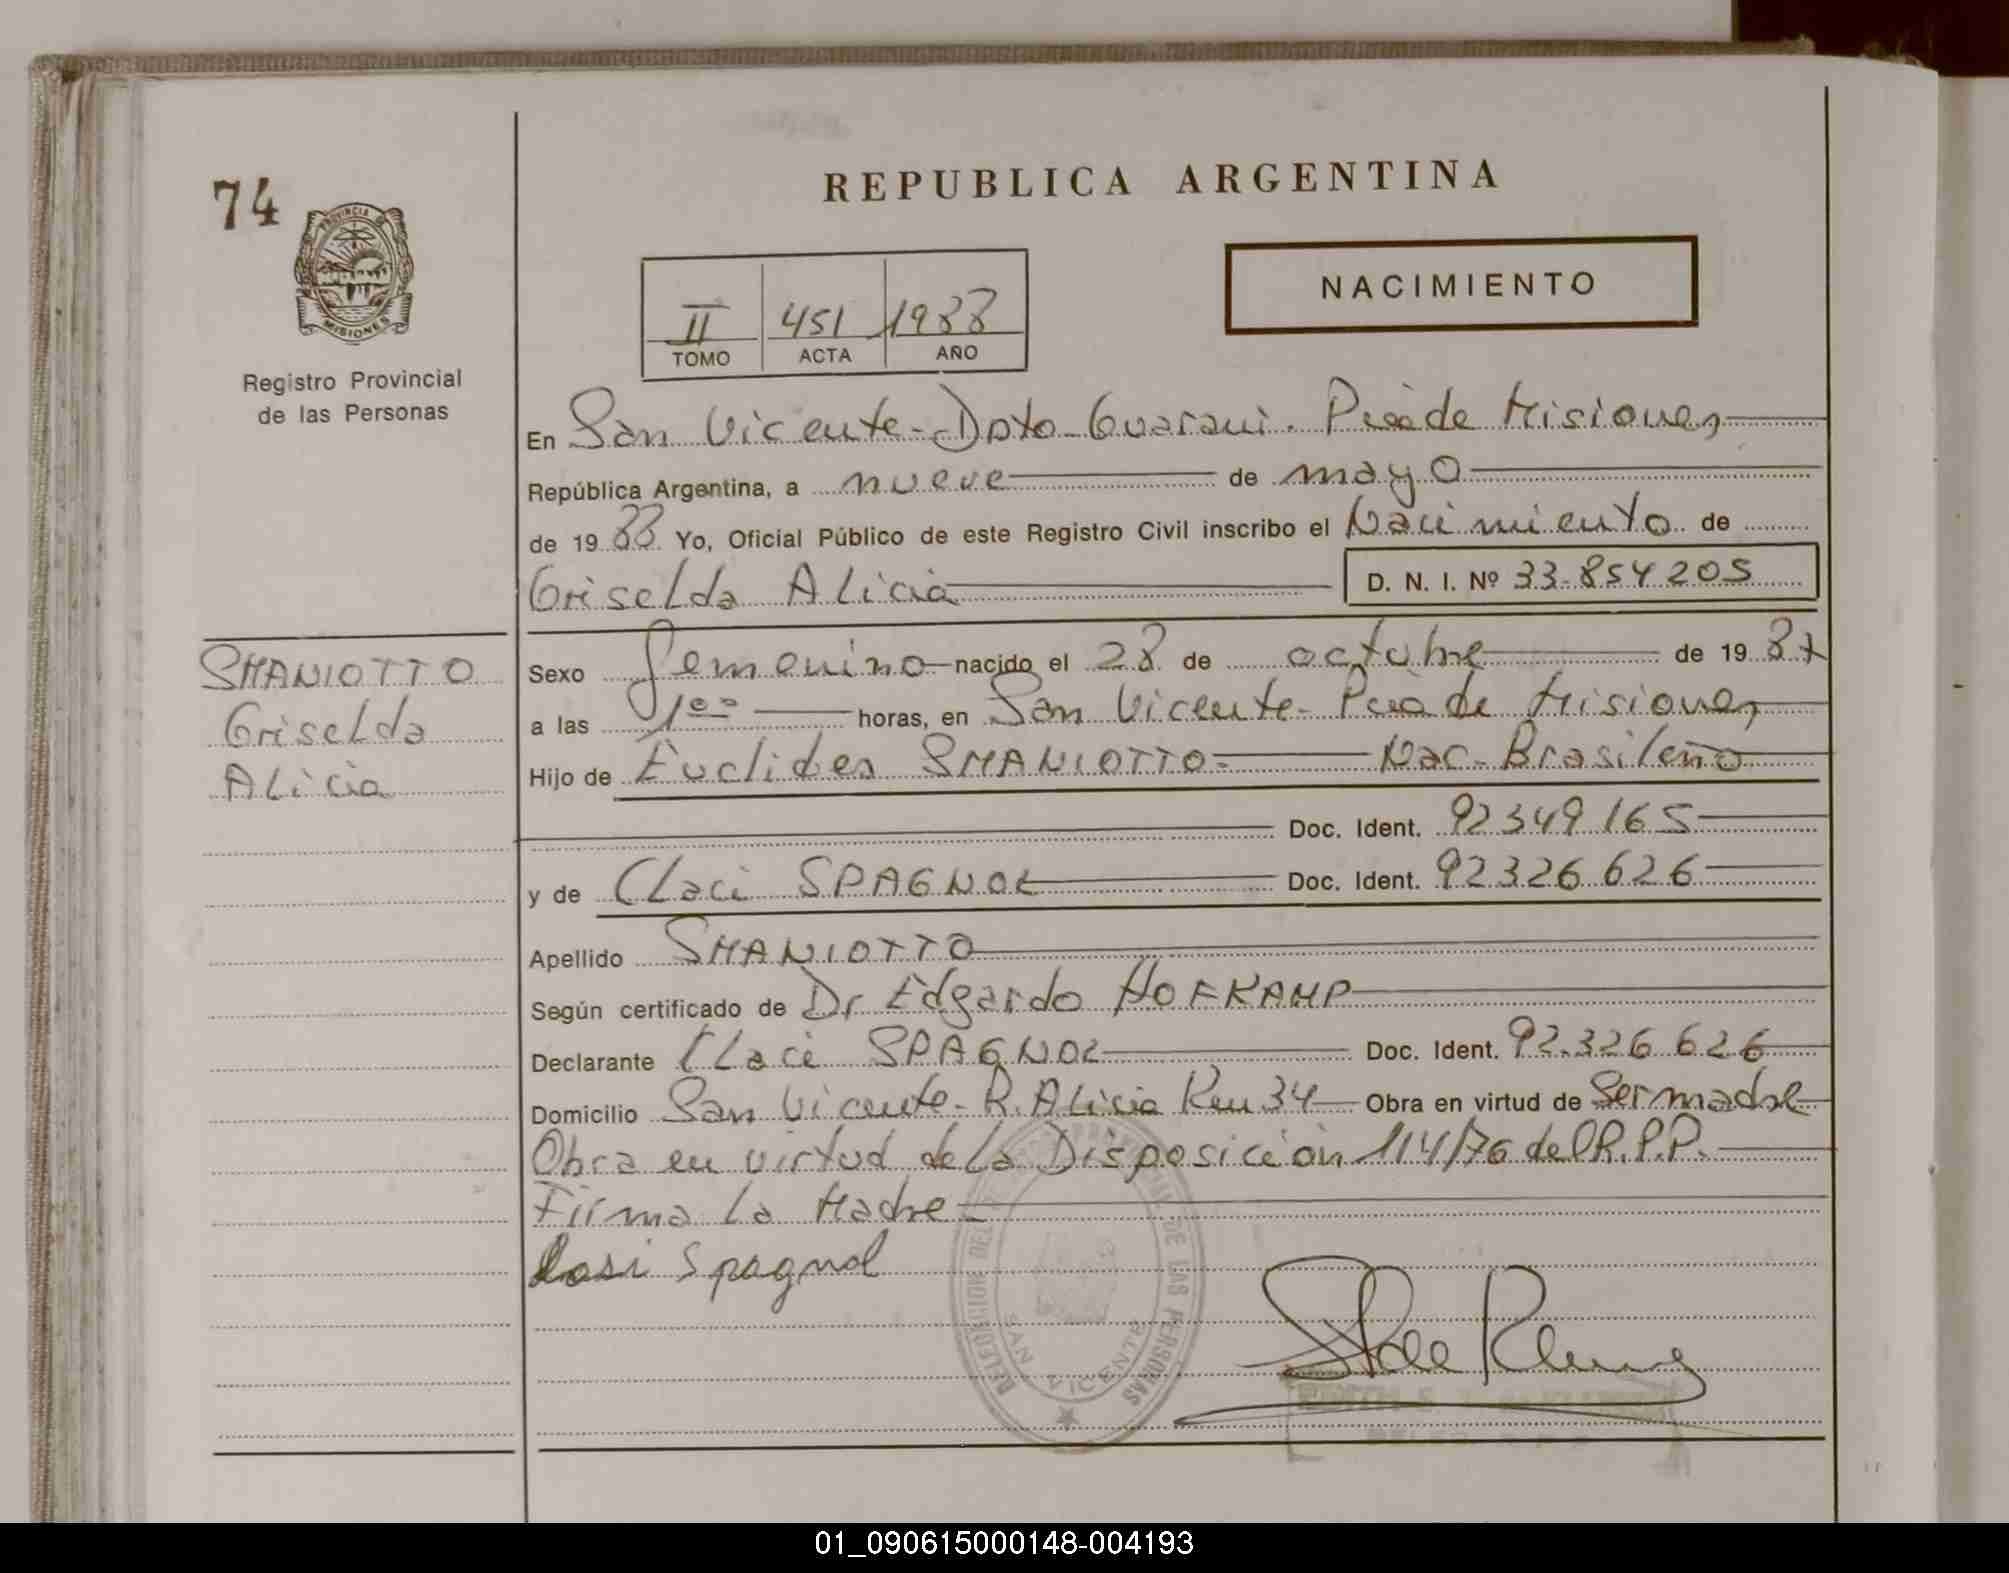 74
PROVINCIA DE
MISIONES
Registro Provincial
de las Personas
REPUBLICA ARGENTINA
II 451 1988
TOMO ACTA AÑO
NACIMIENTO
En San Vicente - Dpto Guaraní. Pcia de Misiones
República Argentina, a nueve de mayo
de 1988 Yo, Oficial Público de este Registro Civil inscribo el Nacimiento de
Griselda Alicia
D. N. I. Nº 33.854205
SMANIOTTO
Griselda
Alicia
Sexo femenino nacido el 28 de octubre de 1987
a las 1ºº horas, en San Vicente - Pcia de Misiones
Hijo de Euclides SMANIOTTO - Nac. Brasileño
Doc. Ident. 92349165
y de Claci SPAGNOL Doc. Ident. 92326626
Apellido SMANIOTTO
Según certificado de Dr Edgardo HOFKAMP
Declarante Claci SPAGNOL Doc. Ident. 92.326626
Domicilio San Vicente - R. Alicia Km 34 Obra en virtud de Ser madre
Obra en virtud de la Disposición 114/76 del R.P.P.
Firma la Madre -
Spagnol
DELEGACION DEL PROVINCIAL DE LAS PERSONAS
SAN VICENTE
01_090615000148-004193